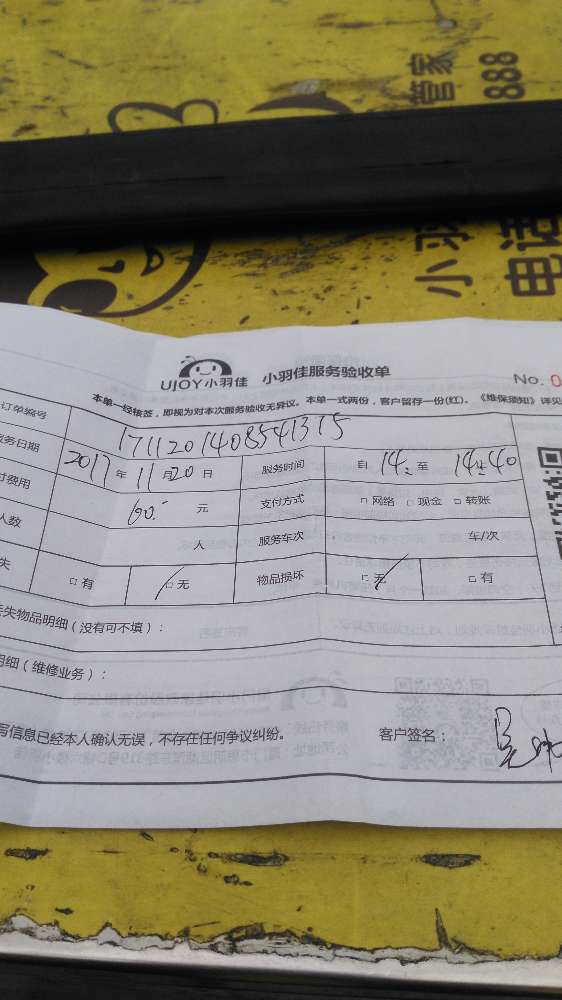 管家
888
小羽
电话
UJOY小羽佳 小羽佳服务验收单
No. 0
本单一经核签，即视为对本次服务验收无异议。本单一式两份，客户留存一份(红)。《维保须知》详见
订单编号 1711201408541315
务日期 2017年11月20日 服务时间 自 14: 至 14:40
费用 60.- 元 支付方式 □网络 □现金 □转账
人数 人 服务车次 车/次
失 □有 □无 物品损坏 □无 □有
失物品明细（没有可不填）：
明细（维修业务）：
写信息已经本人确认无误，不存在任何争议纠纷。 客户签名：